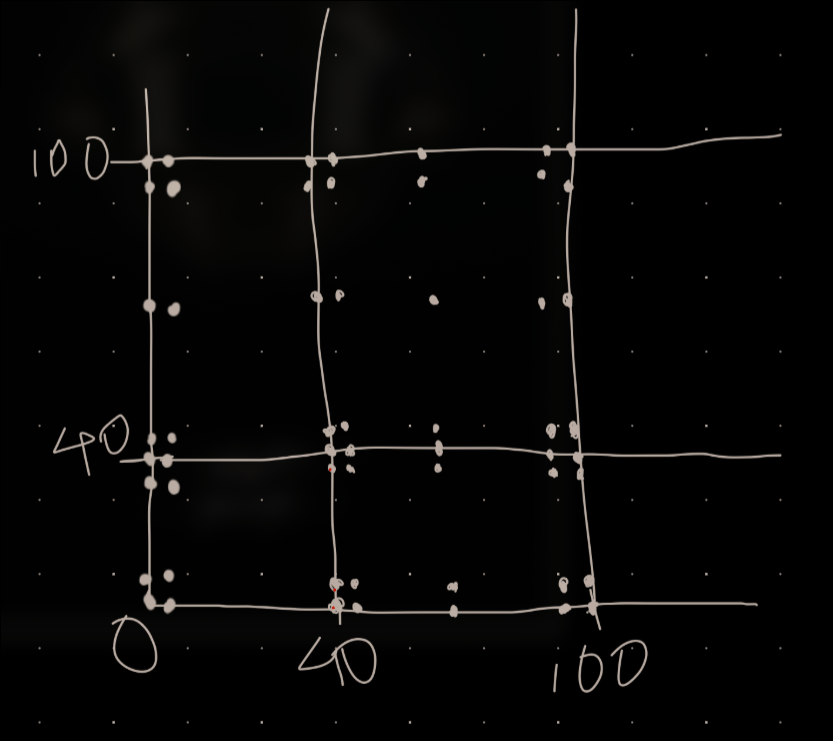 100
40
0 40 100